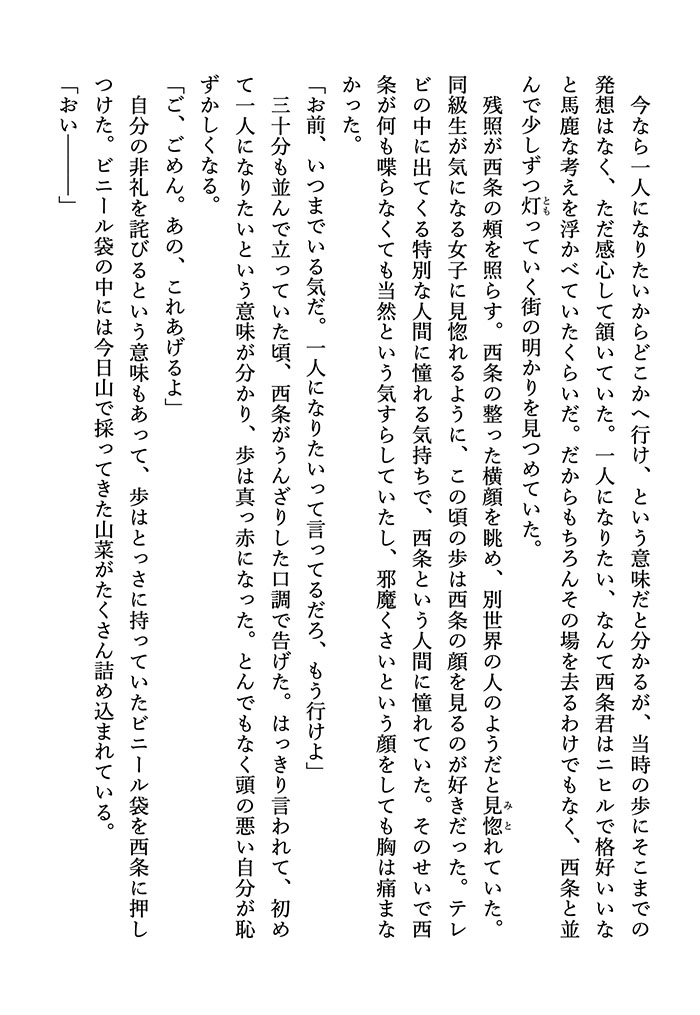 今なら一人になりたいからどこかへ行け、という意味だと分かるが、当時の歩にそこまでの
発想はなく、ただ感心して頷いていた。一人になりたい、なんて西条君はニヒルで格好いいな
と馬鹿な考えを浮かべていたくらいだ。だからもちろんその場を去るわけでもなく、西条と並
んで少しずつ灯っていく街の明かりを見つめていた。
　残照が西条の頰を照らす。西条の整った横顔を眺め、別世界の人のようだと見惚れていた。
同級生が気になる女子に見惚れるように、この頃の歩は西条の顔を見るのが好きだった。テレ
ビの中に出てくる特別な人間に憧れる気持ちで、西条という人間に憧れていた。そのせいで西
条が何も喋らなくても当然という気すらしていたし、邪魔くさいという顔をしても胸は痛まな
かった。
「お前、いつまでいる気だ。一人になりたいって言ってるだろ、もう行けよ」
　三十分も並んで立っていた頃、西条がうんざりした口調で告げた。はっきり言われて、初め
て一人になりたいという意味が分かり、歩は真っ赤になった。とんでもなく頭の悪い自分が恥
ずかしくなる。
「ご、ごめん。あの、これあげるよ」
　自分の非礼を詫びるという意味もあって、歩はとっさに持っていたビニール袋を西条に押し
つけた。ビニール袋の中には今日山で採ってきた山菜がたくさん詰め込まれている。
「おい――」